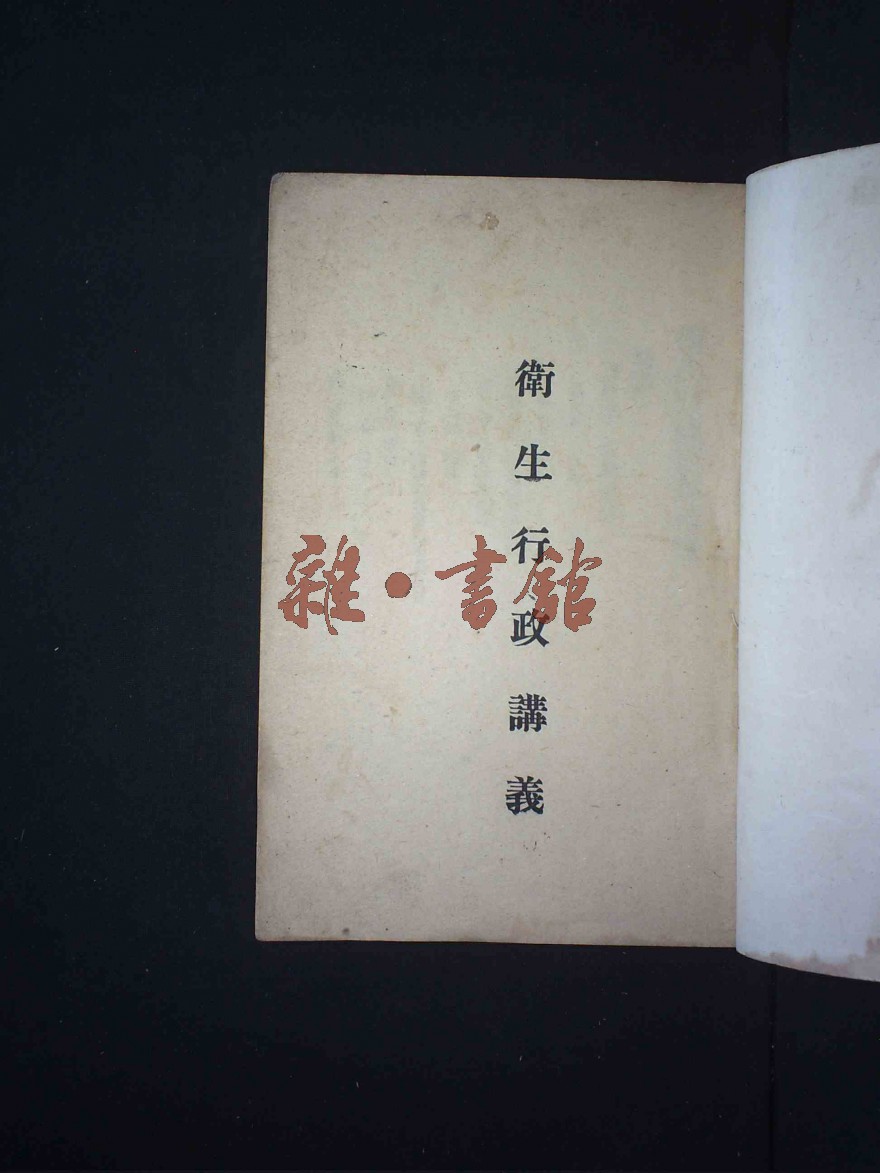 衛生行政講義
雜·書館